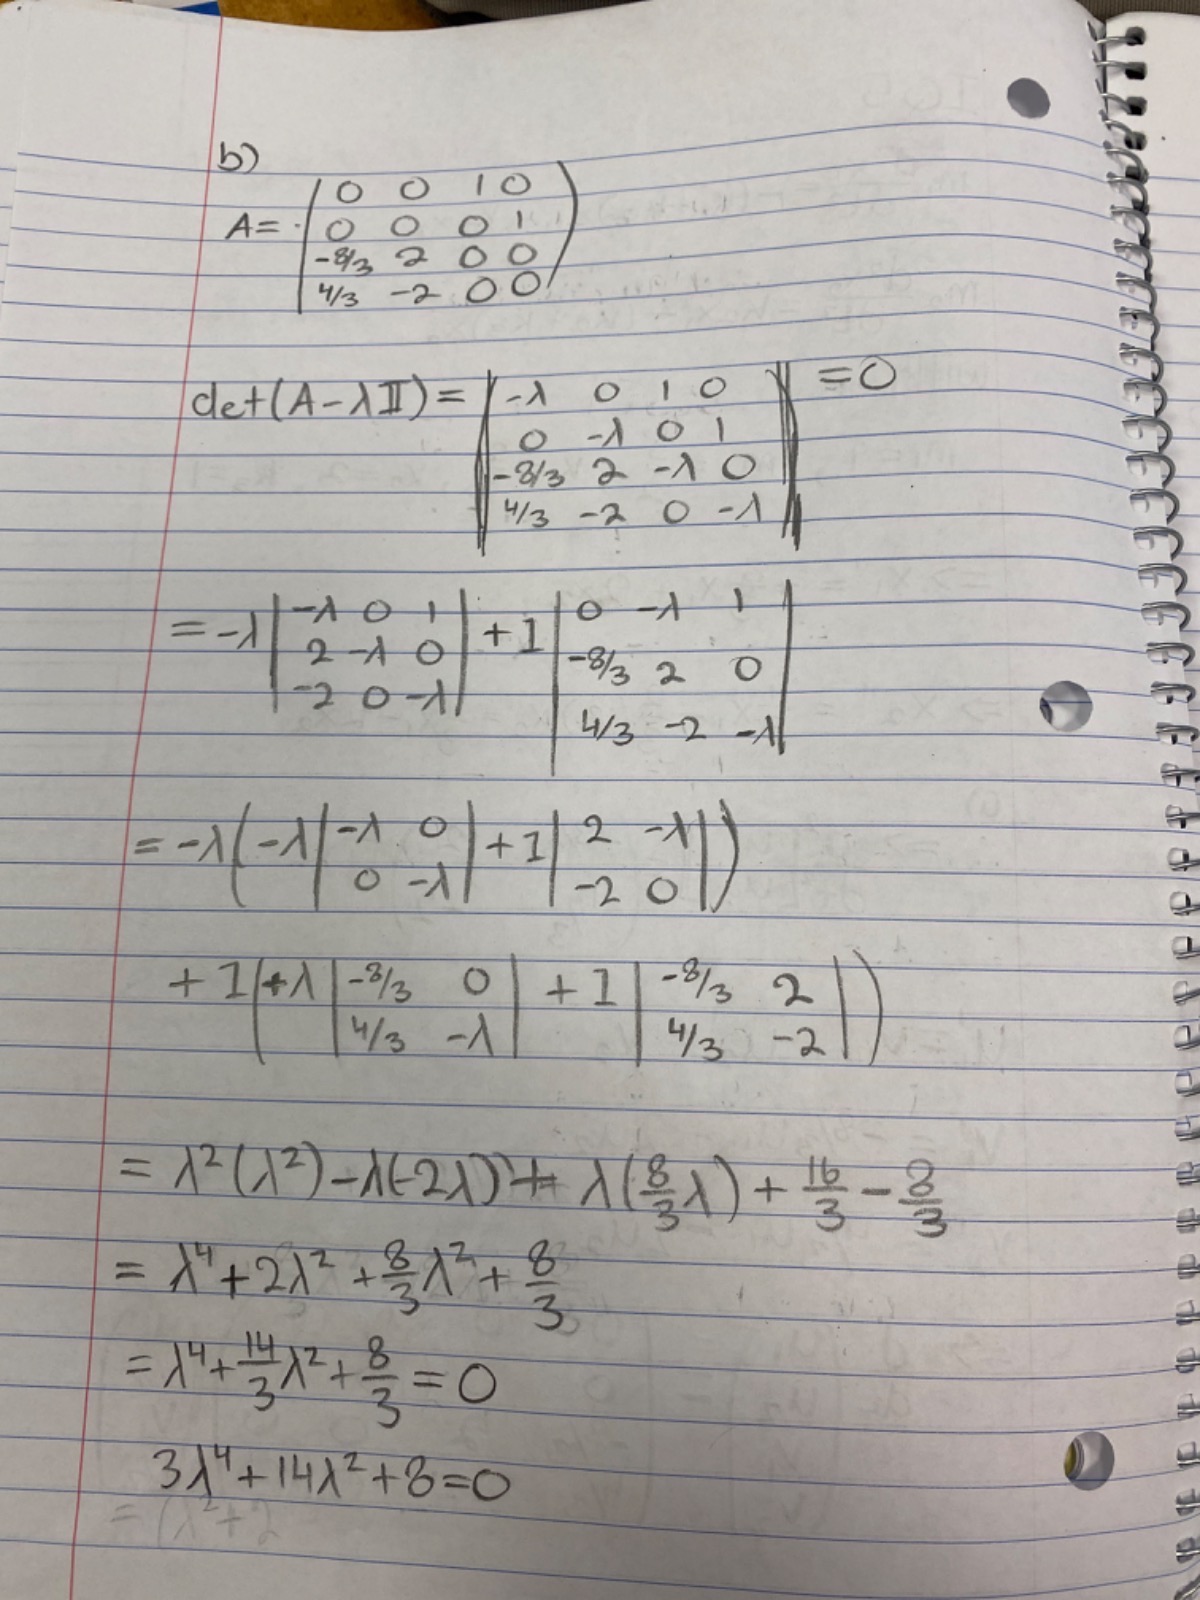 b)
A = ( 0 0 1 0
0 0 0 1
-8/3 2 0 0
4/3 -2 0 0 )
det(A-λII) = | -λ 0 1 0 | = 0
0 -λ 0 1
-8/3 2 -λ 0
4/3 -2 0 -λ
= -λ | -λ 0 1 | + 1 | 0 -λ 1 |
| 2 -λ 0 | | -8/3 2 0 |
| -2 0 -λ | | 4/3 -2 -λ |
= -λ ( -λ | -λ 0 | + 1 | 2 -λ | )
| 0 -λ | | -2 0 |
+ 1 ( +λ | -8/3 0 | + 1 | -8/3 2 | )
| 4/3 -λ | | 4/3 -2 |
= λ²(λ²) - λ(-2λ) + λ(8/3 λ) + 16/3 - 8/3
= λ⁴ + 2λ² + 8/3 λ² + 8/3
= λ⁴ + 14/3 λ² + 8/3 = 0
3λ⁴ + 14λ² + 8 = 0
= (λ² + 2